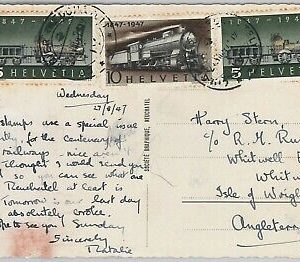 1847-1947
5 HELVETIA
10 HELVETIA
5 HELVETIA
Wednesday
27/8/47
stamps use a special issue
for the centenary
railways - nice aren't
Thought I would send you
so you can see what
Neuchatel at least is
Tomorrow is our last day
absolutely broke.
to see you Sunday
Sincerely
Natalie
SOCIÉTÉ GRAPHIQUE, NEUCHATEL
Harry Stern,
c/o R. M. Rus
Whitwell
Whitwell
Isle of Wight
Angleterre